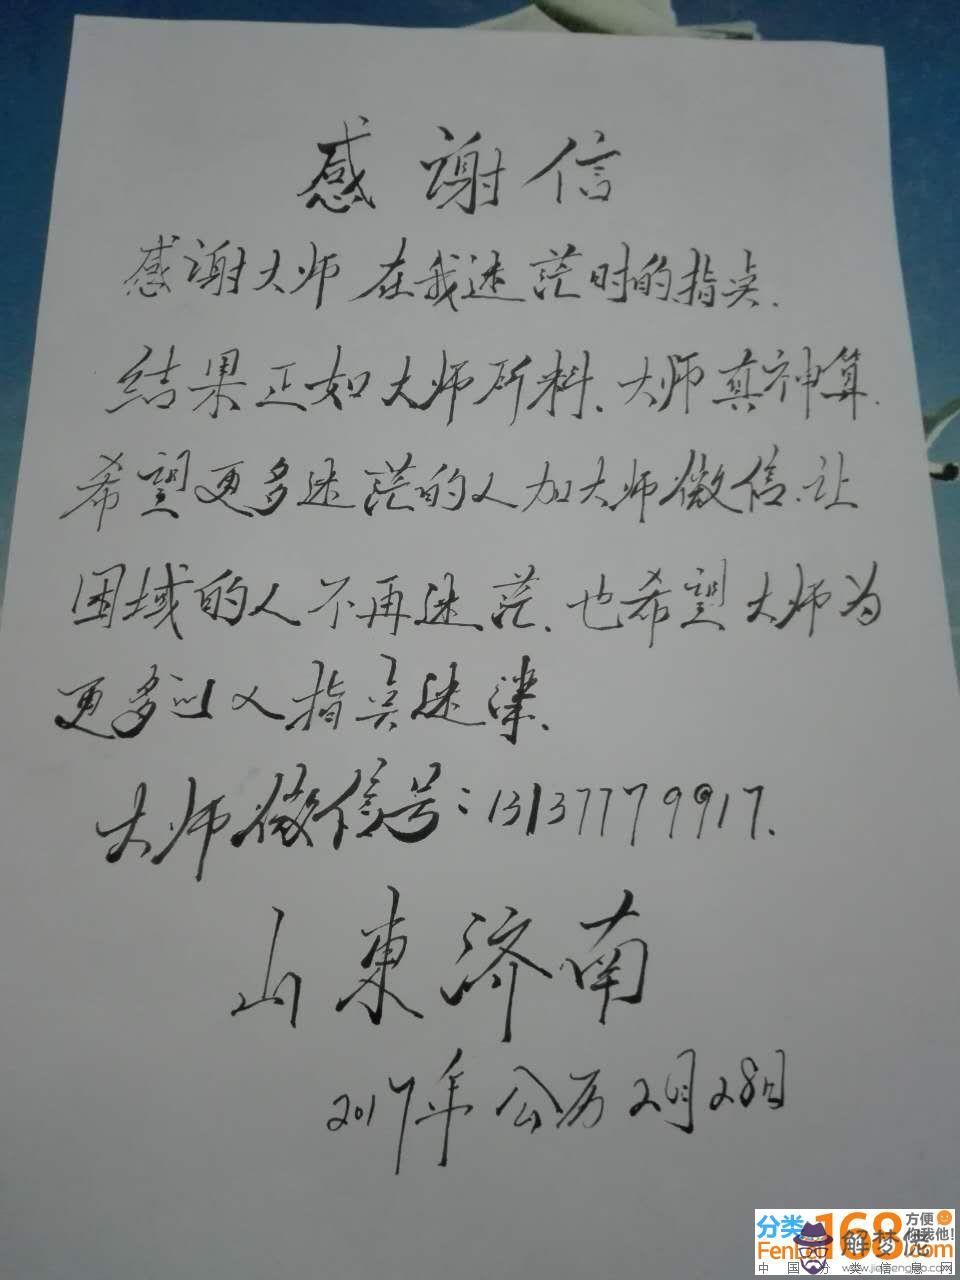 感谢信
感谢大师在我迷茫时的指点.
结果正如大师所料、大师真神算.
希望更多迷茫的人加大师微信、让
困域的人不再迷茫、也希望大师为
更多的人指点迷津、
大师微信号:13137779917.
山東济南
2017年公历2月28日
分类168 方便你我他!
Fenlei168.com
中国分类信息网
解梦佬